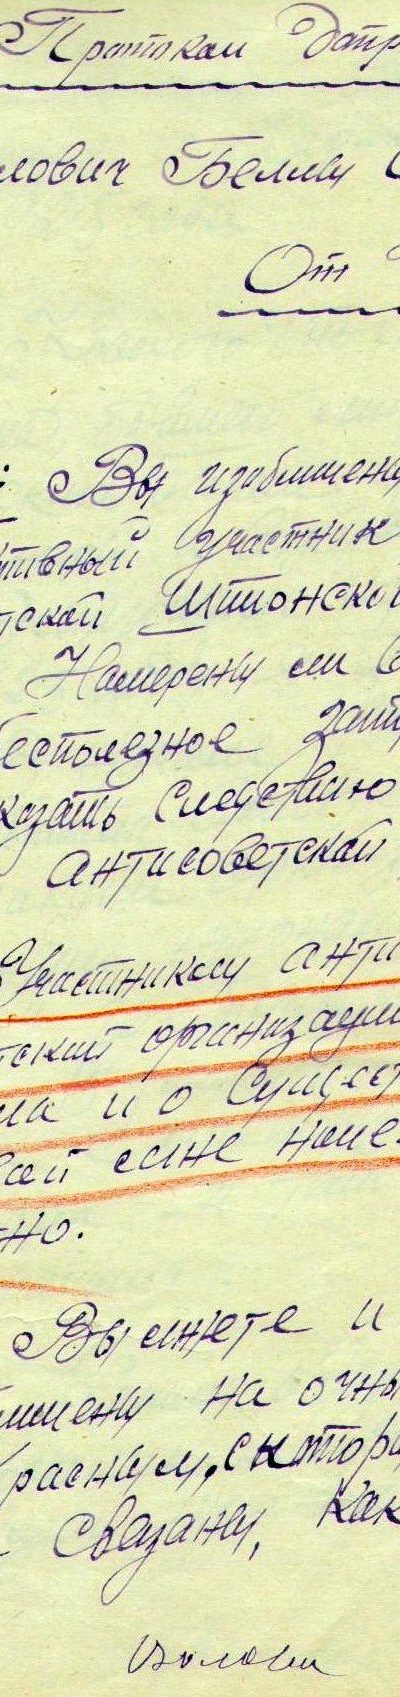 Протокол Допр
лович Беллы
От
: Вы изобличены
тивный участник
тской шпионско
Намерены ли В
бесполезное запи
казать следствию
антисоветской
Участником анти
тской организации
ла и о сущест
вай мне ниче
тно.
Вы лжете и
личены на очны
Красным, с которы
связаны, как